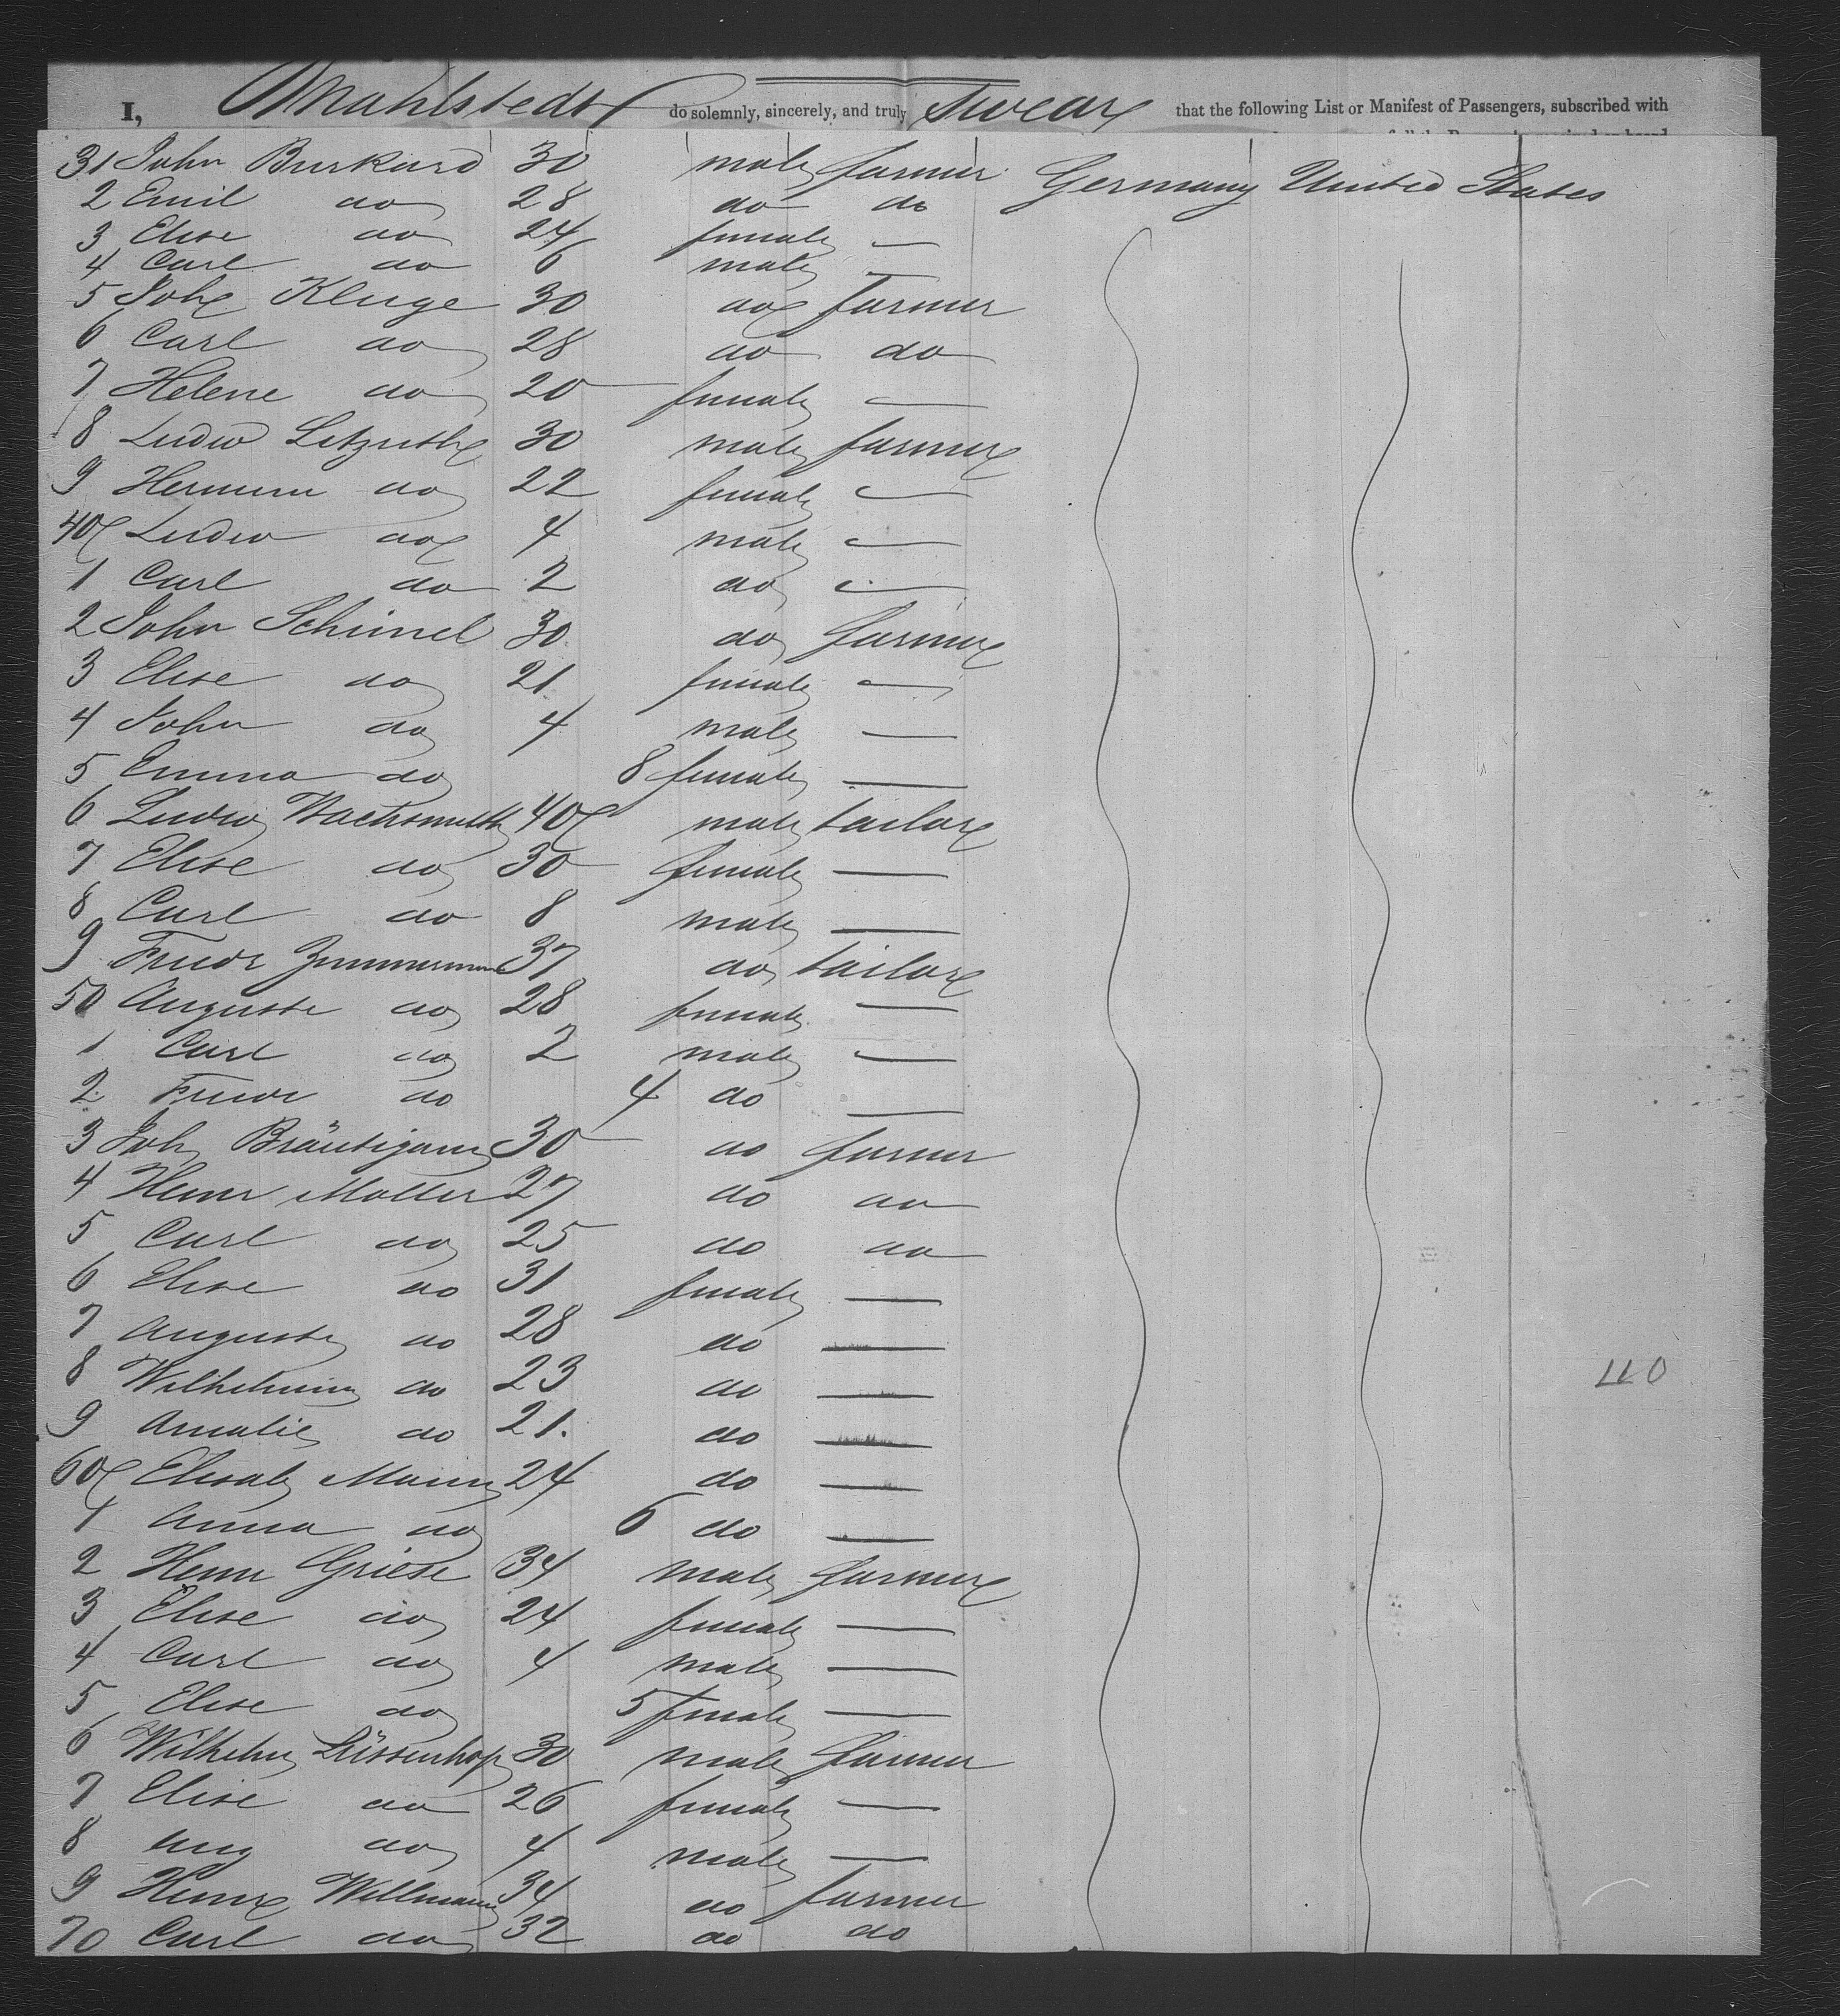 I, Mahlstedt do solemnly, sincerely, and truly Swear that the following List or Manifest of Passengers, subscribed with
31 John Burkard 30 male farmer Germany United States
2 Emil do 28 do do
3 Elise do 24 female —
4 Carl do 6 male —
5 Joh Kluge 30 do farmer
6 Carl do 28 do do
7 Helene do 20 female —
8 Ludw 30 male farmer
9 Hermine do 22 female —
40 Ludw do 4 male —
1 Carl do 2 do —
2 John Schimel 30 do farmer
3 Elise do 21 female —
4 John do 4 male —
5 Emma do 8 female —
6 Ludw Wachsmuth 40 male tailor
7 Elise do 30 female —
8 Carl do 8 male —
9 Friedr Zimmermann 37 do tailor
50 Auguste do 28 female —
1 Carl do 2 male —
2 Friedr do 4 do —
3 Joh Bräutigam 30 do farmer
4 Henr Moller 27 do do
5 Carl do 25 do do
6 Elise do 31 female —
7 Auguste do 28 do —
8 Wilhelmine do 23 do —
9 Amalie do 21. do —
60 Elisab 24 do —
1 Anna do 6 do —
2 Henr Griese 34 male farmer
3 Elise do 24 female —
4 Carl do 4 male —
5 Elise do 5 female —
6 Wilhelm Lüssenhop 30 male farmer
7 Elise do 26 female —
8 Aug do 4 male —
9 Henr Willmann 34 do farmer
70 Carl do 32 do do